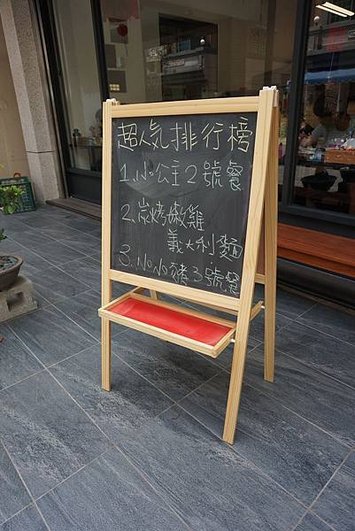 超人気排行榜
1.小公主2號餐
2.炭烤嫩雞
義大利麵
3.NoNo豬3號餐